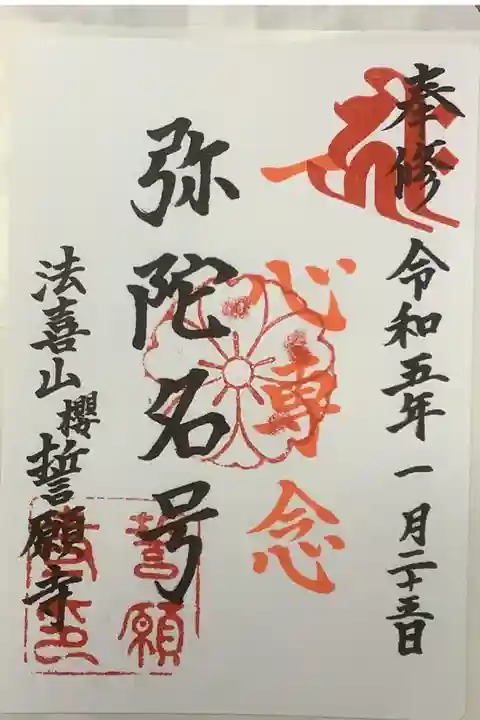 奉修 令和五年一月二十五日
一心専念
弥陀名号
法喜山櫻誓願寺
誓願